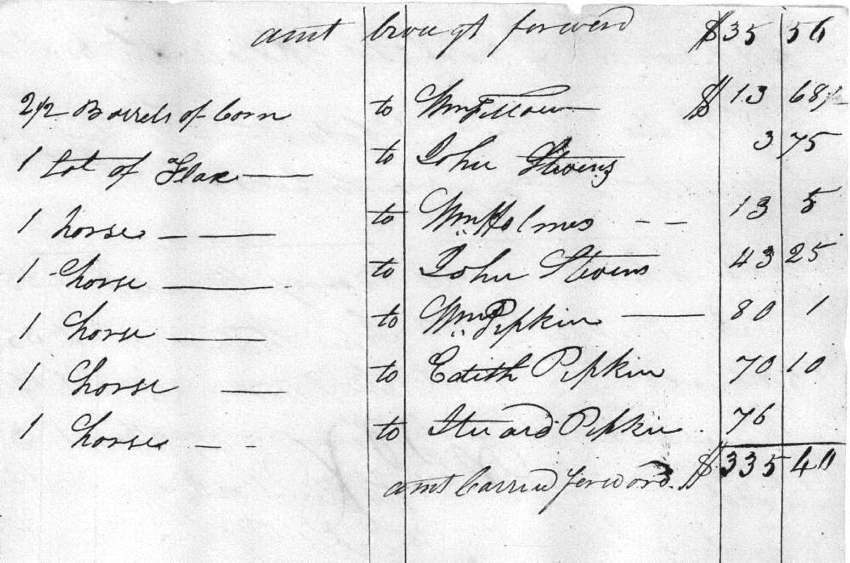 amt brougt forword $35 56
2 1/2 Barrels of Corn to Wm $13 68
1 Lot of Flax — to John Stevens 3 75
1 horse — — to Wm Holmes - - 13 5
1 horse — to John Stevens 43 25
1 horse — to Wm Pipkin — 80 1
1 horse — to Edith Pipkin 70 10
1 horse - - to Pipkin 76
amt Carried forword. $335 40